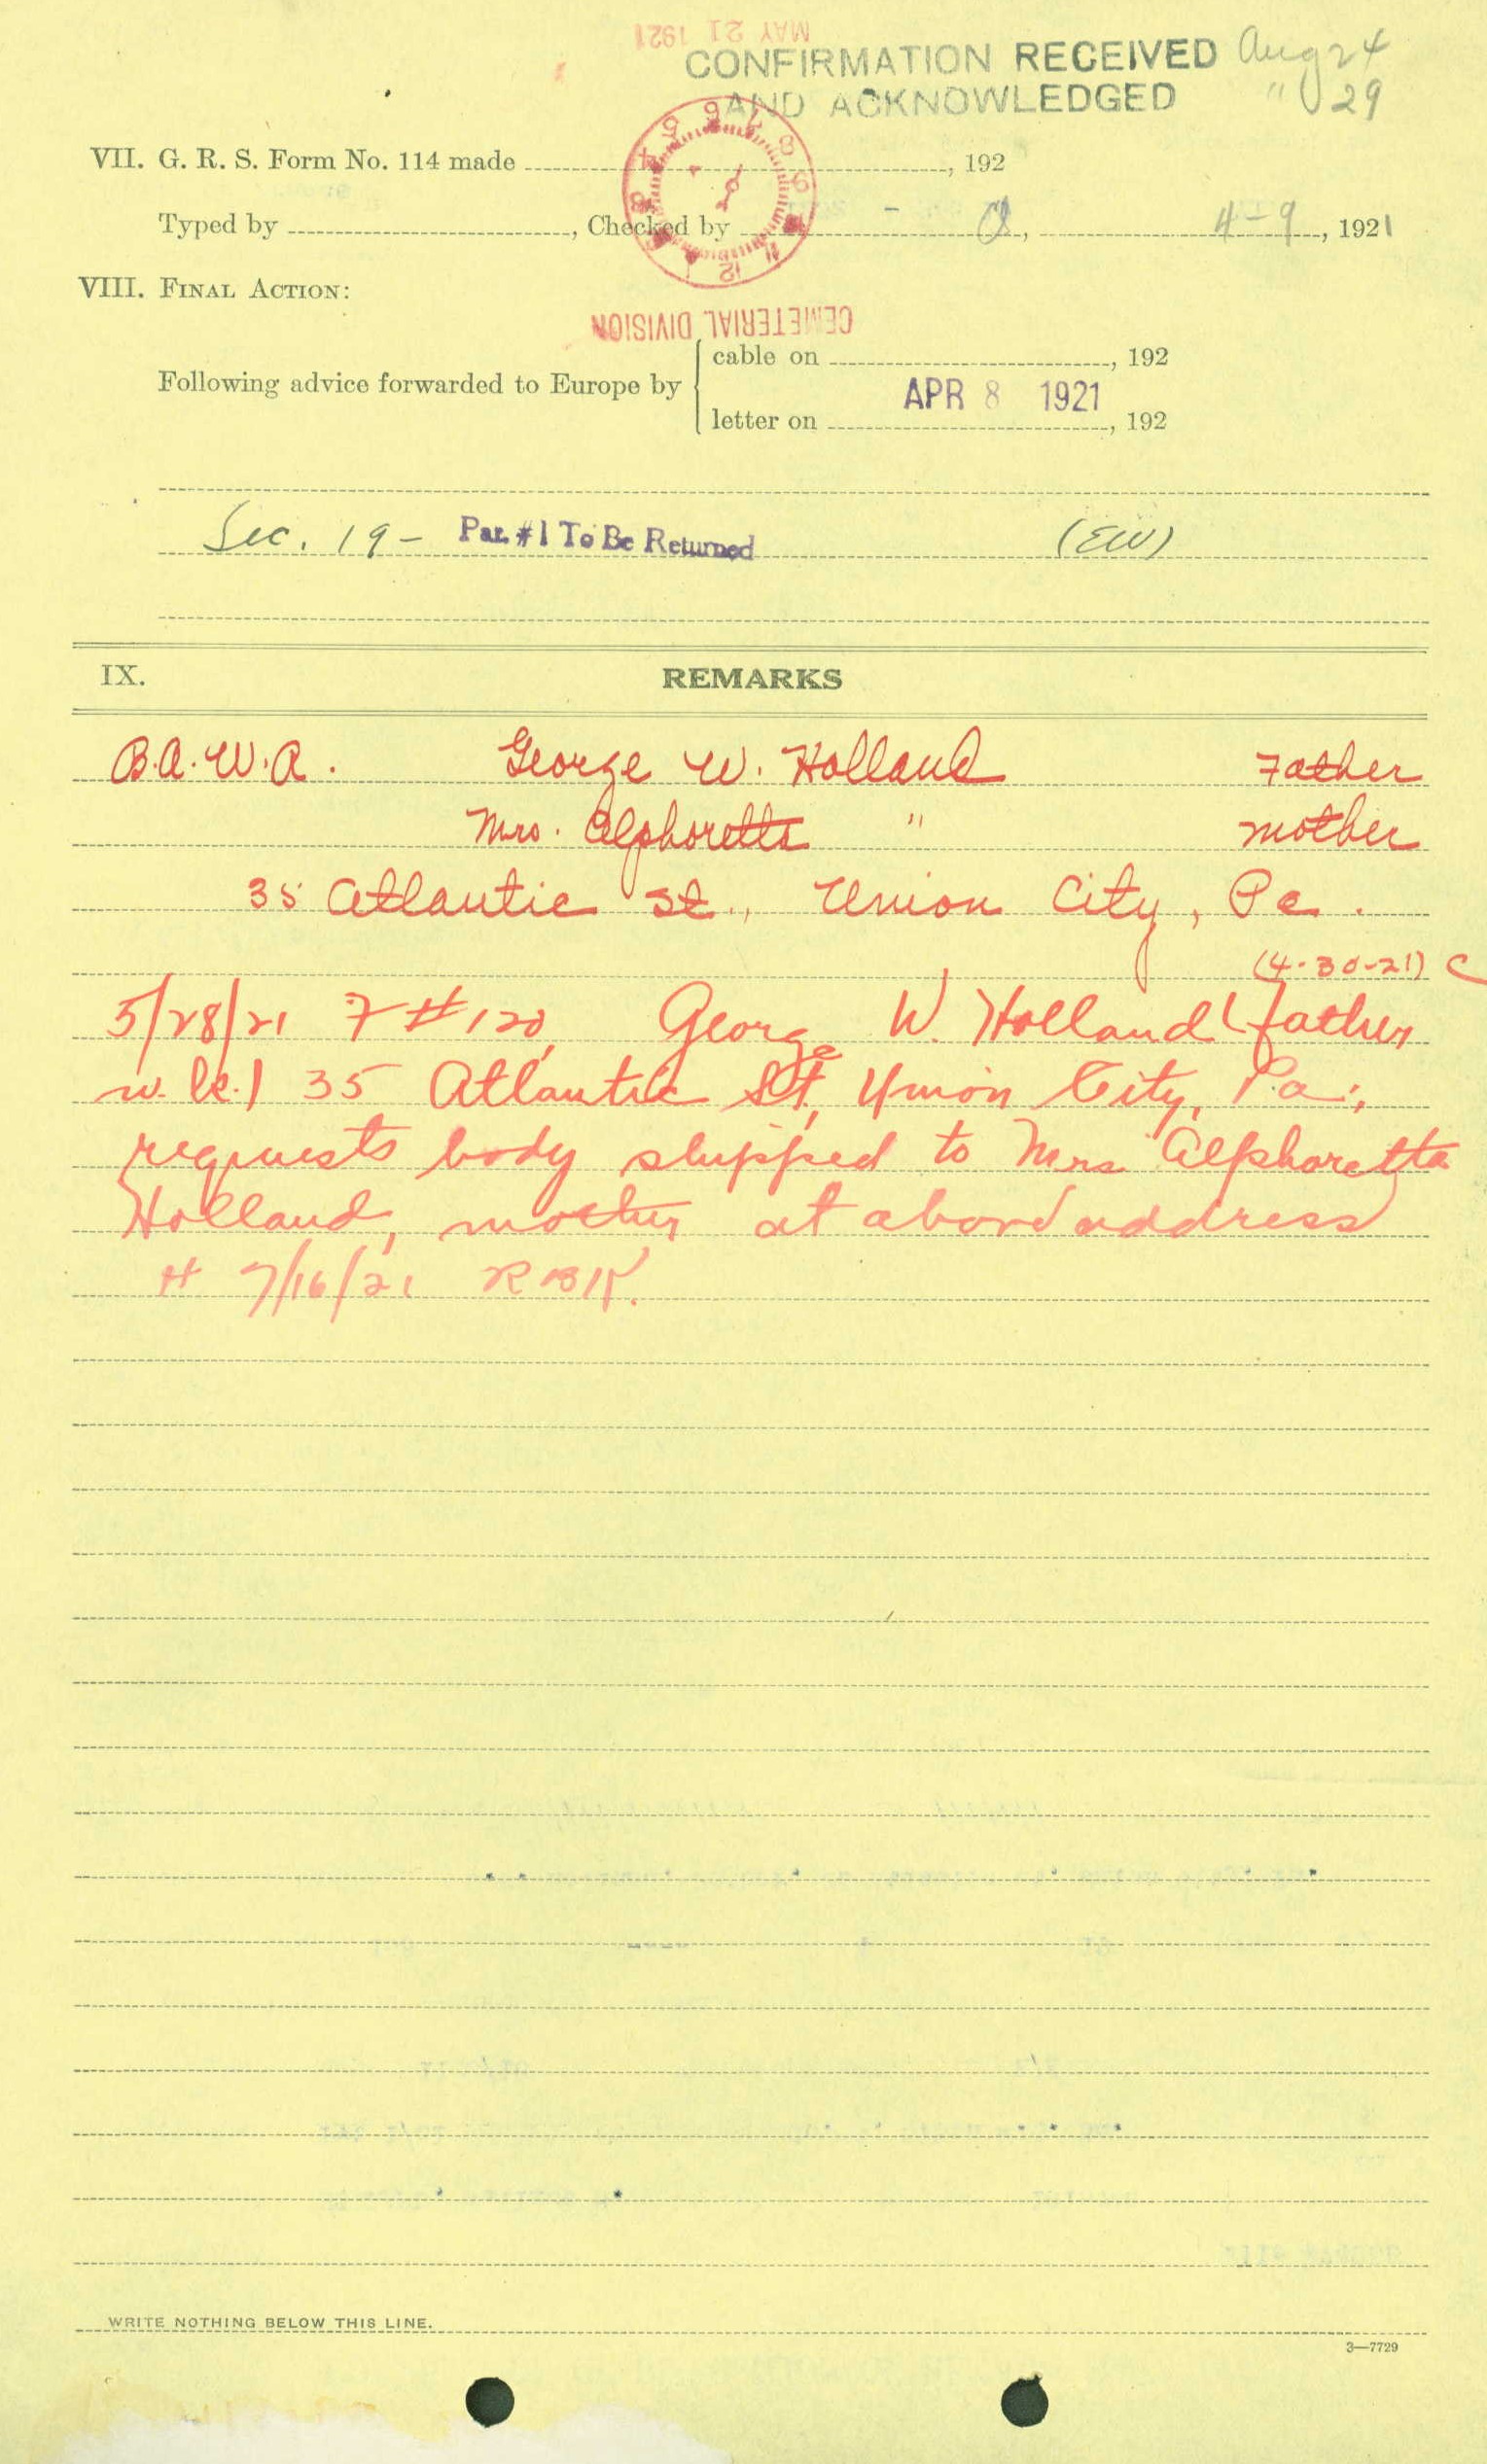 MAY 21 1921
CONFIRMATION RECEIVED Aug 24
AND ACKNOWLEDGED " 29
VII. G. R. S. Form No. 114 made , 192
Typed by , Checked by , 4-9, 1921
VIII. FINAL ACTION:
CEMETERIAL DIVISION
Following advice forwarded to Europe by
cable on , 192
APR 8 1921
letter on , 192
Sec. 19- Par. #1 To Be Returned (EW)
IX. REMARKS
B.A.W.R. George W. Holland Father
Mrs. Alphoretta " mother
35 Atlantic St., Union City, Pa.
(4-30-21) C
5/28/21 7#120, George W. Holland (father
35 Atlantic St, Union City, Pa.,
requests body shipped to Mrs Alphoretta
Holland, mother at above address
H 7/16/21
WRITE NOTHING BELOW THIS LINE.
3—7729